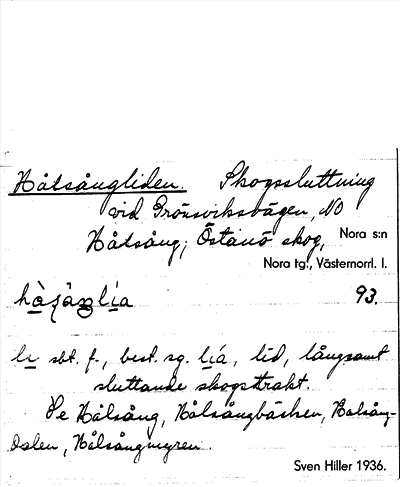 Hålsångliden. Skogssluttning
vid Grönsviksvägen, NO
Hålsång; Östanö skog, Nora s:n
Nora tg., Västernorrl. l.
93.
li sbt. f., best. sg. lía, lid, långsamt
sluttande skogstrakt.
Se Hålsång, Hålsångbäcken, Hålsång-
oslen, Hålsångmyren.
Sven Hiller 1936.